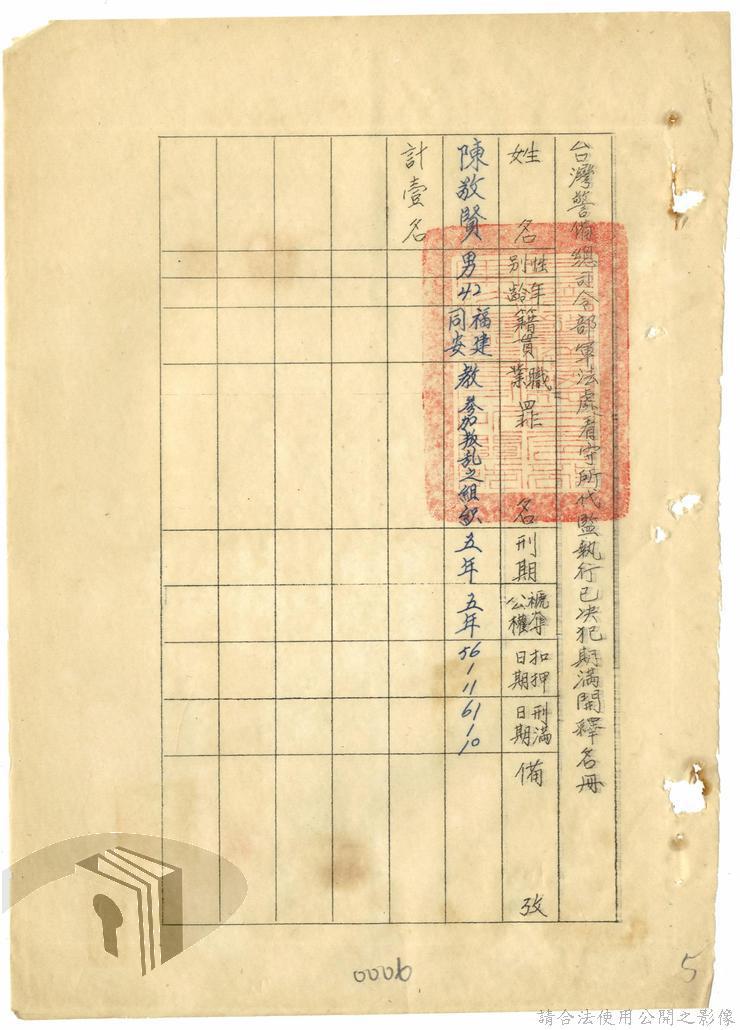 台灣警備總司令部軍法處看守所代監執行已決犯期滿開釋名冊
姓名
性別
年齡
籍貫
職業
罪名
刑期
褫奪公權
扣押日期
刑滿日期
備攷
陳敬賢
男
42
福建同安
教
參加叛乱之組織
五年
五年
56 1 11
61 1 10
計壹名
0006
5
請合法使用公開之影像